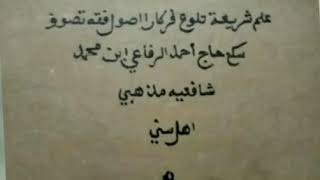 علم شريعة تلوع فركارا اصول فقه تصوف
سكع حاج أحمد الرفاعي ابن محمد
شافعيه مذهبي
اهل سني